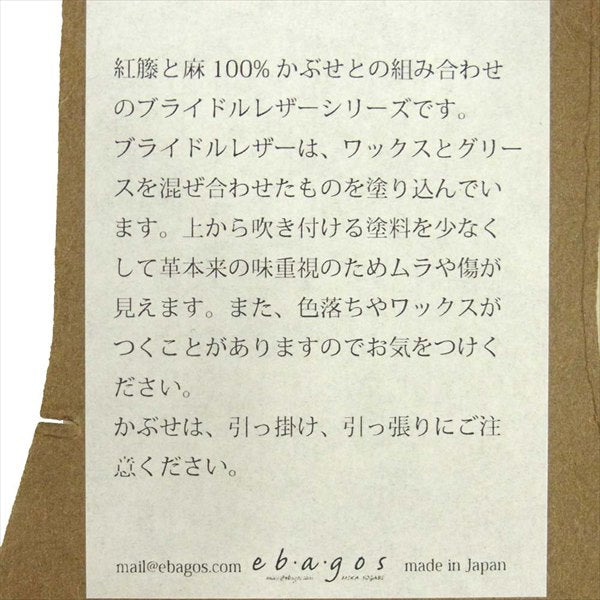 紅籐と麻100%かぶせとの組み合わせ
のブライドルレザーシリーズです。
ブライドルレザーは、ワックスとグリー
スを混ぜ合わせたものを塗り込んでい
ます。上から吹き付ける塗料を少なく
して革本来の味重視のためムラや傷が
見えます。また、色落ちやワックスが
つくことがありますのでお気をつけく
ださい。
かぶせは、引っ掛け、引っ張りにご注
意ください。
mail@ebagos.com e b . a . g o s made in Japan